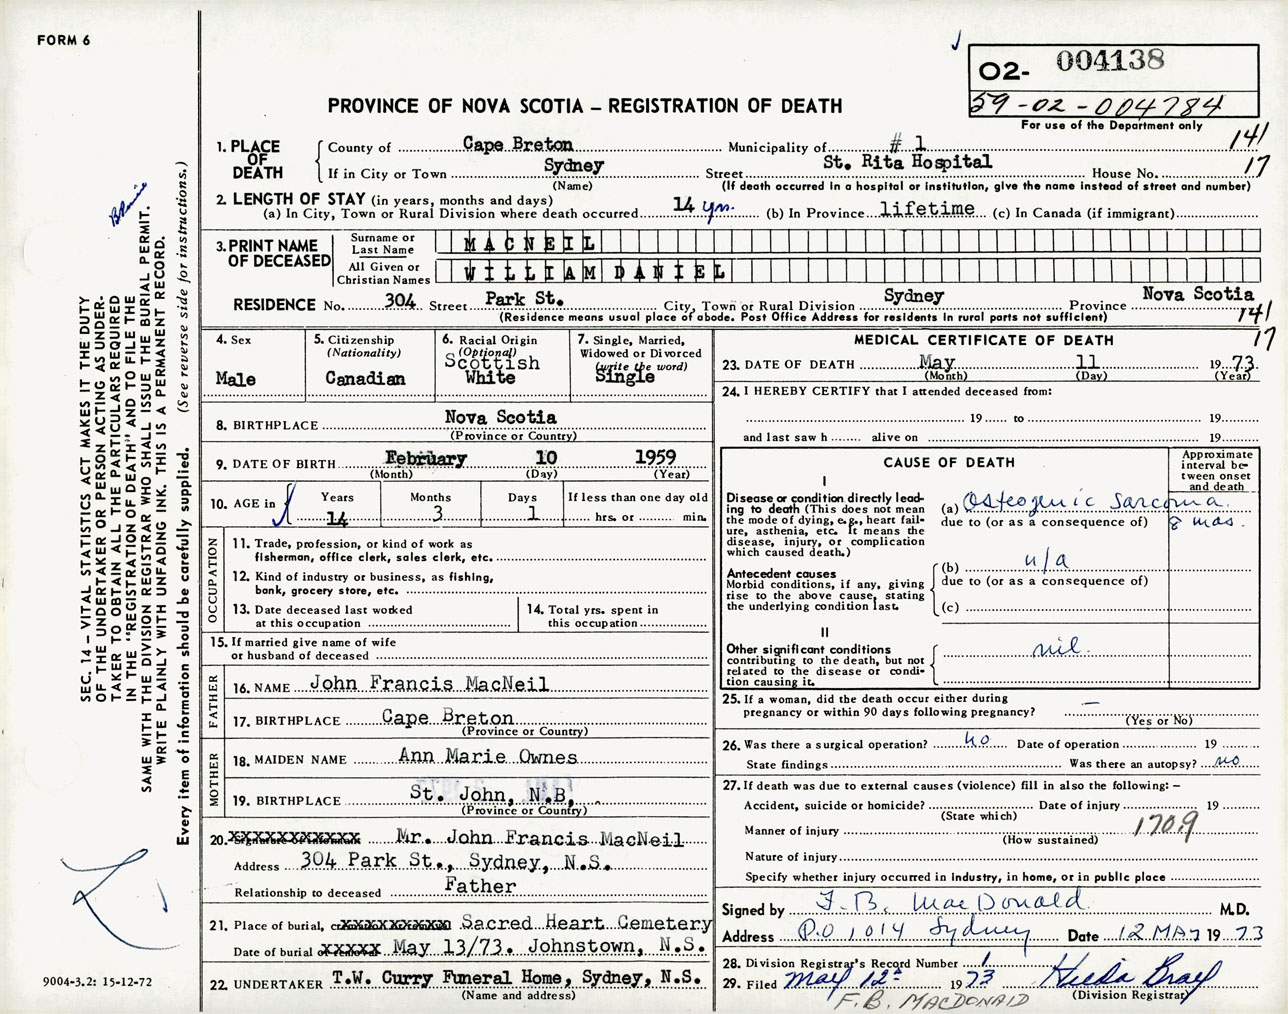 FORM 6
O2- 004138
59-02-004784
For use of the Department only
PROVINCE OF NOVA SCOTIA – REGISTRATION OF DEATH
141
17
1. PLACE OF DEATH
County of Cape Breton Municipality of # 1
If in City or Town Sydney Street St. Rita Hospital House No.
(Name) (If death occurred in a hospital or institution, give the name instead of street and number)
2. LENGTH OF STAY (in years, months and days)
(a) In City, Town or Rural Division where death occurred 14 yrs. (b) In Province lifetime (c) In Canada (if immigrant)
3. PRINT NAME OF DECEASED
Surname or Last Name MACNEIL
All Given or Christian Names WILLIAM DANIEL
RESIDENCE No. 304 Street Park St. City, Town or Rural Division Sydney Province Nova Scotia
(Residence means usual place of abode. Post Office Address for residents in rural parts not sufficient)
141
17
4. Sex
Male
5. Citizenship
(Nationality)
Canadian
6. Racial Origin
(Optional)
Scottish
White
7. Single, Married,
Widowed or Divorced
(write the word)
Single
8. BIRTHPLACE Nova Scotia
(Province or Country)
9. DATE OF BIRTH February 10 1959
(Month) (Day) (Year)
10. AGE in
Years Months Days If less than one day old
14 3 1 hrs. or min.
OCCUPATION
11. Trade, profession, or kind of work as
fisherman, office clerk, sales clerk, etc.
12. Kind of industry or business, as fishing,
bank, grocery store, etc.
13. Date deceased last worked
at this occupation
14. Total yrs. spent in
this occupation
15. If married give name of wife
or husband of deceased
FATHER
16. NAME John Francis MacNeil
17. BIRTHPLACE Cape Breton
(Province or Country)
MOTHER
18. MAIDEN NAME Ann Marie Ownes
19. BIRTHPLACE St. John, N.B.
(Province or Country)
20. Signature of informant Mr. John Francis MacNeil
Address 304 Park St., Sydney, N.S.
Relationship to deceased Father
21. Place of burial, Sacred Heart Cemetery
Date of burial or removal May 13/73. Johnstown, N.S.
22. UNDERTAKER T.W. Curry Funeral Home, Sydney, N.S.
(Name and address)
MEDICAL CERTIFICATE OF DEATH
23. DATE OF DEATH May 11 1973
(Month) (Day) (Year)
24. I HEREBY CERTIFY that I attended deceased from:
19 to 19
and last saw h alive on 19
CAUSE OF DEATH
Approximate interval between onset and death
I
Disease or condition directly leading to death (This does not mean the mode of dying, e.g., heart failure, asthenia, etc. It means the disease, injury, or complication which caused death.)
(a) Osteogenic Sarcoma
due to (or as a consequence of) 8 mos.
Antecedent causes
Morbid conditions, if any, giving rise to the above cause, stating the underlying condition last.
(b) n/a
due to (or as a consequence of)
(c)
II
Other significant conditions
contributing to the death, but not related to the disease or condition causing it.
nil
25. If a woman, did the death occur either during
pregnancy or within 90 days following pregnancy? —
(Yes or No)
26. Was there a surgical operation? no Date of operation 19
State findings Was there an autopsy? no
27. If death was due to external causes (violence) fill in also the following: –
Accident, suicide or homicide? Date of injury 19
(State which)
Manner of injury 170.9
(How sustained)
Nature of injury
Specify whether injury occurred in industry, in home, or in public place
Signed by F. B. MacDonald M.D.
Address P.O 1014 Sydney Date 12 MAY 1973
28. Division Registrar's Record Number 1
29. Filed May 12th 1973 Hilda Bray
(Division Registrar)
F. B. MACDONALD
SEC. 14 – VITAL STATISTICS ACT MAKES IT THE DUTY
OF THE UNDERTAKER OR PERSON ACTING AS UNDER-
TAKER TO OBTAIN ALL THE PARTICULARS REQUIRED
IN THE "REGISTRATION OF DEATH" AND TO FILE THE
SAME WITH THE DIVISION REGISTRAR WHO SHALL ISSUE THE BURIAL PERMIT.
WRITE PLAINLY WITH UNFADING INK. THIS IS A PERMANENT RECORD.
Every item of information should be carefully supplied. (See reverse side for instructions.)
9004-3.2: 15-12-72